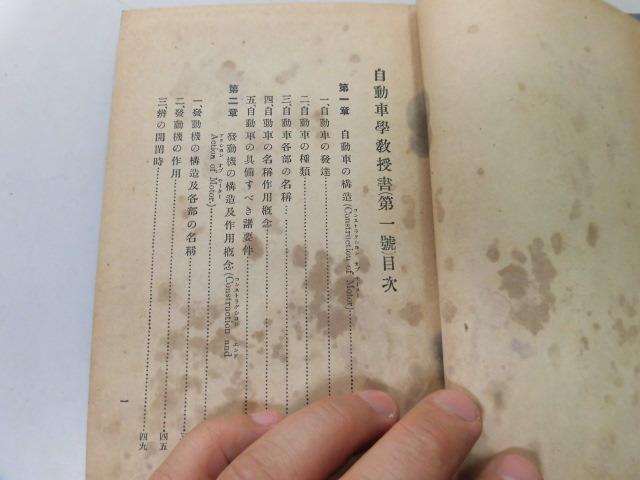 自動車學敎授書(第一號)目次
第一章 自動車の構造(Construction of Motor)
一、自動車の發達
二、自動車の種類
三、自動車各部の名稱
四、自動車の名稱作用槪念
五、自動車の具備すべき諸要件
第二章 發動機の構造及作用槪念(Construction and
Action of Motor)
一、發動機の構造及各部の名稱
二、發動機の作用 四五
三、瓣の開閉時 四九
一